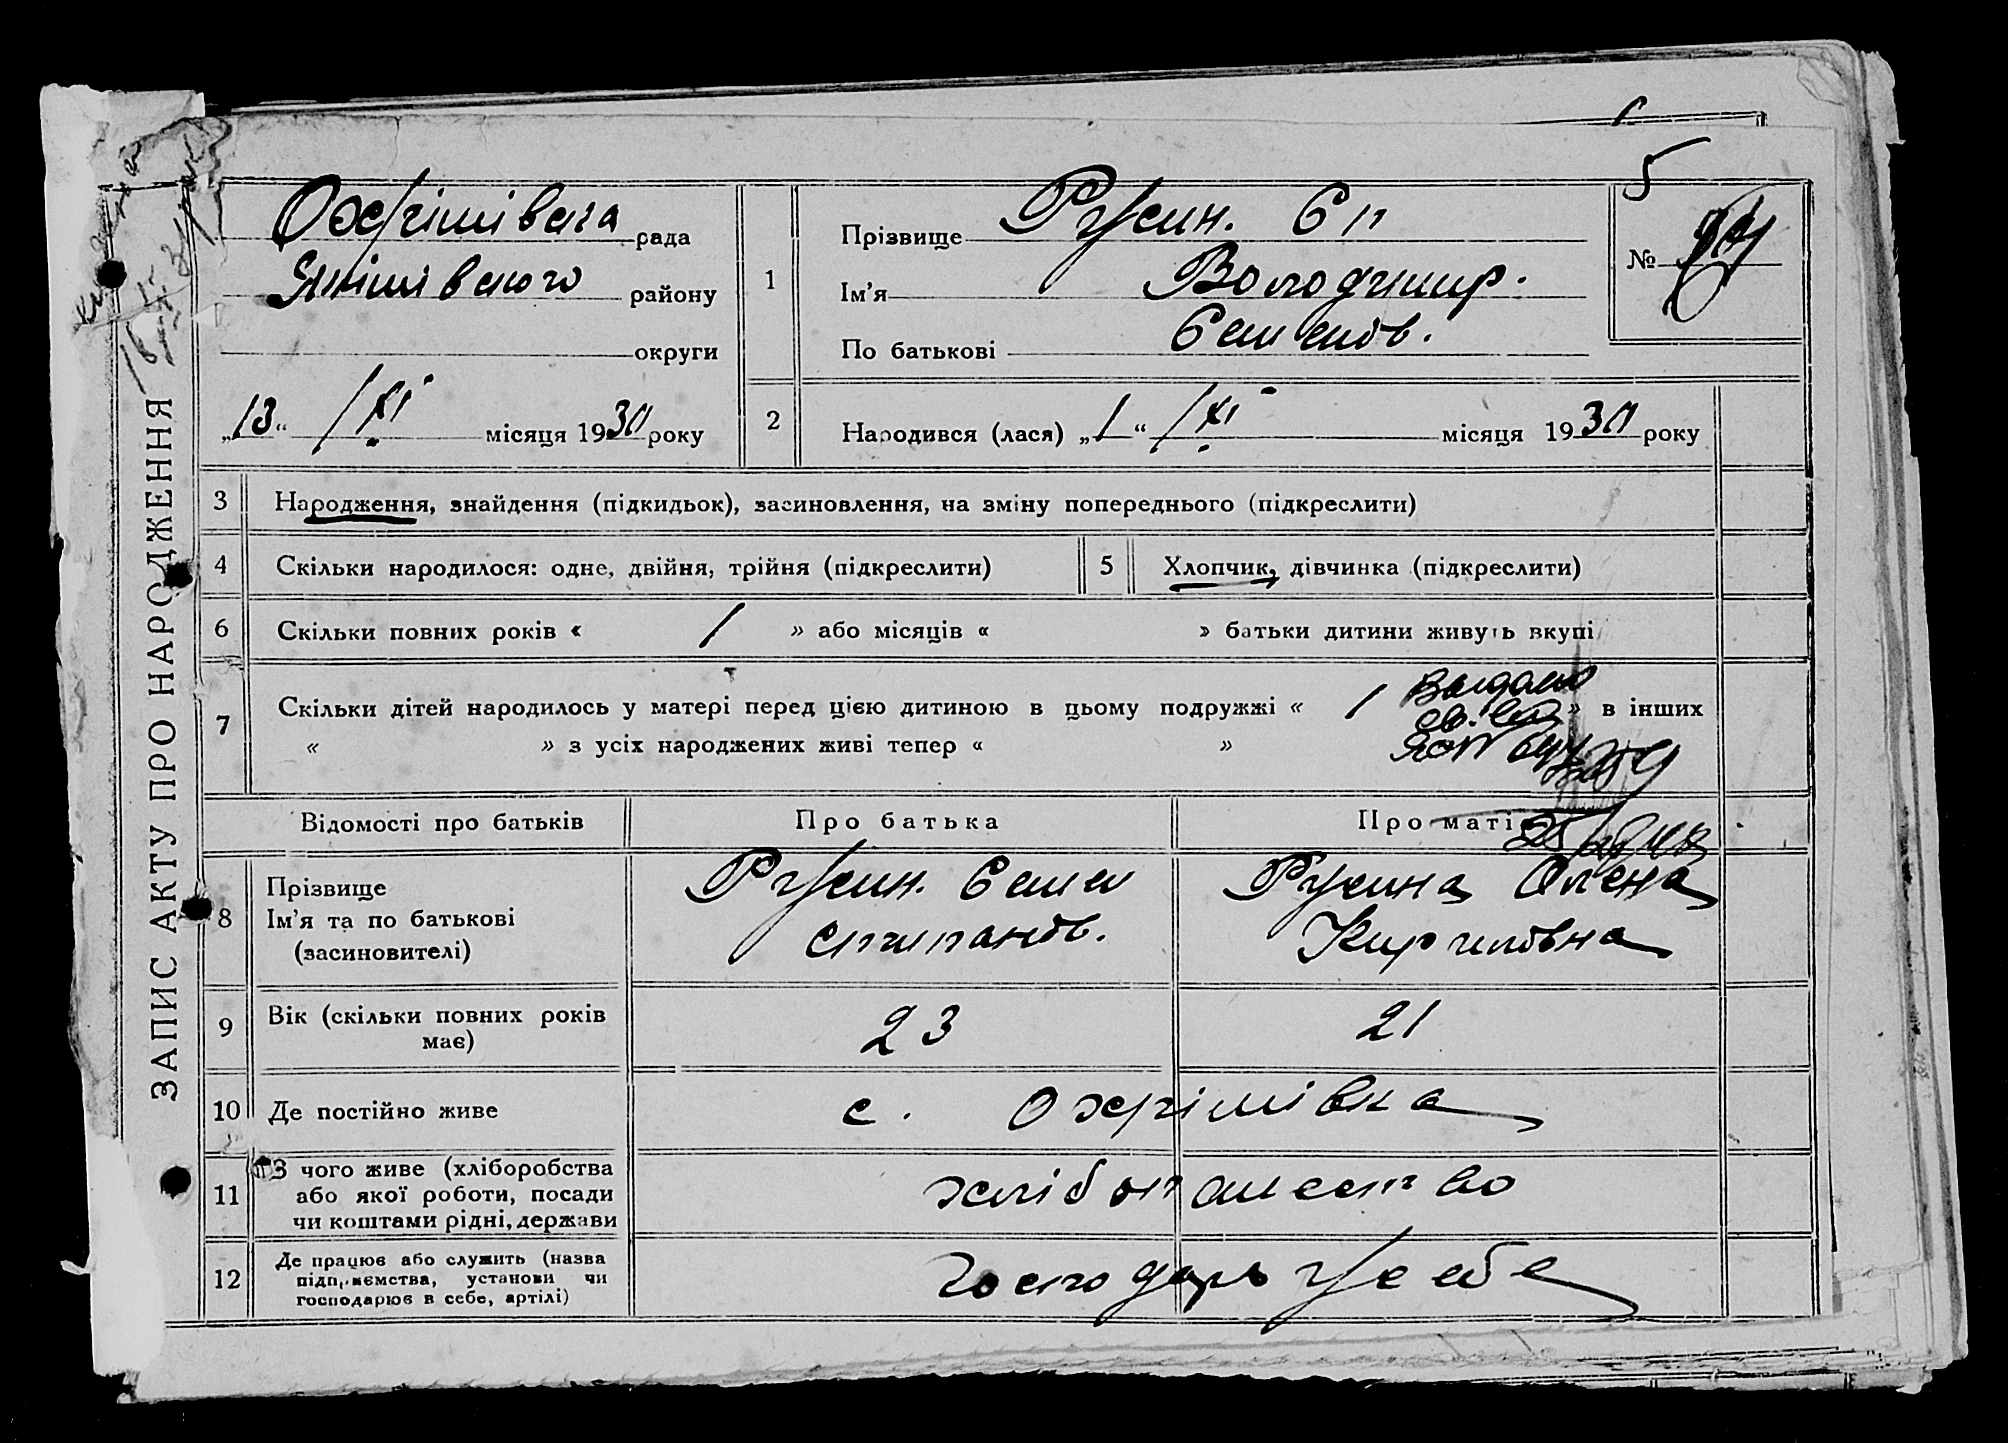 5
Охрімівська рада
району
округи
„13“ /XI місяця 1930 року
ЗАПИС АКТУ ПРО НАРОДЖЕННЯ
1
Прізвище Русин.
Ім’я Володимир.
По батькові Семенов.
№
2
Народився (лася) „1“ /XI місяця 1930 року
3 Народження, знайдення (підкидьок), засиновлення, на зміну попереднього (підкреслити)
4 Скільки народилося: одне, двійня, трійня (підкреслити) 5 Хлопчик, дівчинка (підкреслити)
6 Скільки повних років « 1 » або місяців « » батьки дитини живуть вкупі
7 Скільки дітей народилось у матері перед цією дитиною в цьому подружжі « 1 » в інших
« » з усіх народжених живі тепер « »
Видано
Відомості про батьків Про батька Про матір
8 Прізвище Русин. Семен Русина Олена
Ім’я та по батькові Степанов. Кириловна
(засиновителі)
9 Вік (скільки повних років має) 23 21
10 Де постійно живе с. Охрімівка
11 З чого живе (хліборобства
або якої роботи, посади
чи коштами рідні, держави
хлібопашество
12 Де працює або служить (назва
підприємства, установи чи
господарює в себе, артілі)
господарь у себе